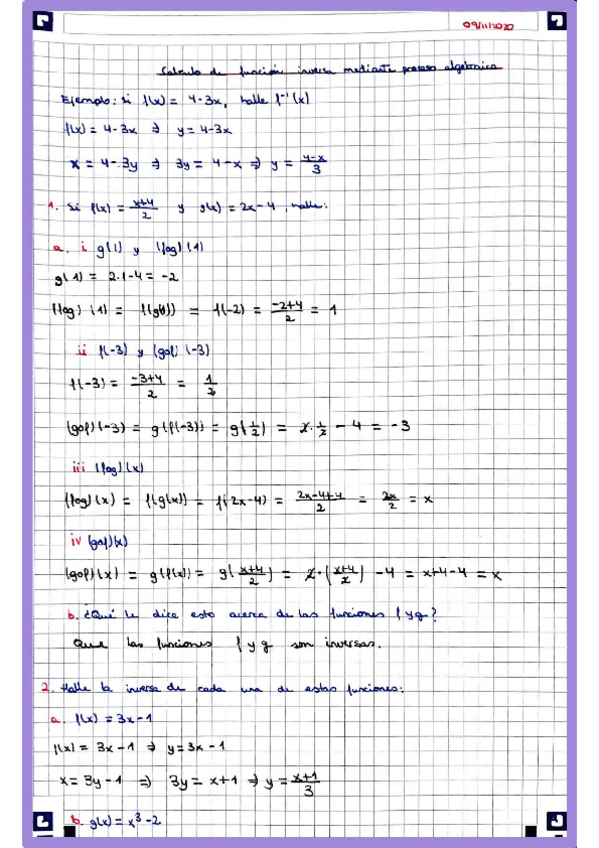 09/11/2020
Calculo de función inversa mediante proceso algebraico
Ejemplo: si f(x) = 4-3x, halle f⁻¹(x)
f(x) = 4-3x ⇒ y = 4-3x
x = 4-3y ⇒ 3y = 4-x ⇒ y = (4-x)/3
1. Si f(x) = (x+4)/2 y g(x) = 2x-4, halle:
a. i g(1) y (fog)(1)
g(1) = 2·1-4 = -2
(fog)(1) = f(g(1)) = f(-2) = (-2+4)/2 = 1
ii f(-3) y (gof)(-3)
f(-3) = (-3+4)/2 = 1/2
(gof)(-3) = g(f(-3)) = g(1/2) = 2·1/2 - 4 = -3
iii (fog)(x)
(fog)(x) = f(g(x)) = f(2x-4) = (2x-4+4)/2 = 2x/2 = x
iv (gof)(x)
(gof)(x) = g(f(x)) = g((x+4)/2) = 2·((x+4)/2) - 4 = x+4-4 = x
b. ¿Qué le dice esto acerca de las funciones f y g?
Que las funciones f y g son inversas.
2. Halle la inversa de cada una de estas funciones:
a. f(x) = 3x-1
f(x) = 3x-1 ⇒ y = 3x-1
x = 3y-1 ⇒ 3y = x+1 ⇒ y = (x+1)/3
b. g(x) = x³-2